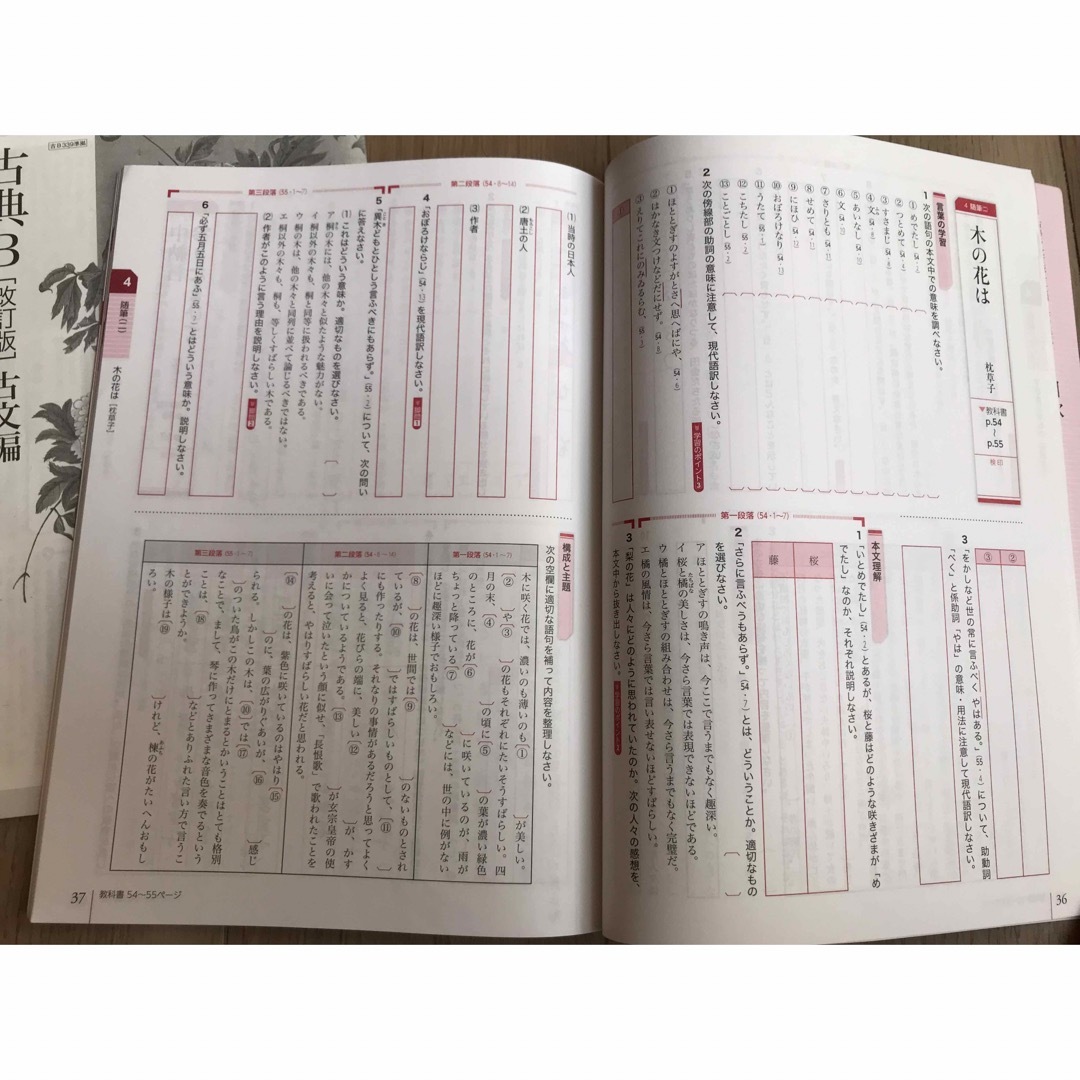 4 随筆二
木の花は
枕草子
▼教科書
p.54
〜
p.55
検印
言葉の学習
1 次の語句の本文中での意味を調べなさい。
①めでたし
②つとめて
③すさまじ
④文
⑤あいなし
⑥文
⑦さりとも
⑧せめて
⑨にほひ
⑩おぼろけなり
⑪うたて
⑫こちたし
⑬ことごとし
2 次の傍線部の助詞の意味に注意して、現代語訳しなさい。
学習のポイント3
①ほととぎすのよすがとさへ思へばにや、(54・6)
②はかなき文つけなどだにせず。
③えりてこれにのみゐるらむ、
②
③
3 「をかしなど世の常に言ふべくやはある。」(55・6)について、助動詞
「べく」と係助詞「やは」の意味・用法に注意して現代語訳しなさい。
本文理解
第一段落(54・1〜7)
1 「いとめでたし」(54・2)とあるが、桜と藤はどのような咲きざまが「め
でたし」なのか、それぞれ説明しなさい。
桜
藤
2 「さらに言ふべうもあらず。」(54・7)とは、どういうことか。適切なもの
を選びなさい。
ア ほととぎすの鳴き声は、今ここで言うまでもなく趣深い。
イ 桜と橘の美しさは、今さら言葉では表現できないほどである。
ウ 橘とほととぎすの組み合わせは、今さら言うまでもなく完璧だ。
エ 橘の風情は、今さら言葉では言い表せないほどすばらしい。
3 「梨の花」は人々にどのように思われていたのか。次の人々の感想を、
本文中から抜き出しなさい。
36
(1) 当時の日本人
(2) 唐土の人
(3) 作者
第二段落(54・8〜14)
4 「おぼろけならじ」(54・13)を現代語訳しなさい。
第三段落(55・1〜7)
5 「異木どもとひとしう言ふべきにもあらず。」(55・2)について、次の問い
に答えなさい。
(1) これはどういう意味か。適切なものを選びなさい。
ア 桐の木には、他の木々と似たような魅力がない。
イ 桐以外の木々も、桐と同等に扱われるべきである。
ウ 桐の木は、他の木々と同列に並べて論じるべきではない。
エ 桐以外の木々も、桐も、等しくすばらしい木である。
(2) 作者がこのように言う理由を説明しなさい。
6 「必ず五月五日にあふ」(55・7)とはどういう意味か。説明しなさい。
構成と主題
次の空欄に適切な語句を補って内容を整理しなさい。
第一段落(54・1〜7)
木に咲く花では、濃いのも薄いのも〔① 〕が美しい。
〔② 〕や〔③ 〕の花もそれぞれにたいそうすばらしい。四
月の末、〔④ 〕の頃に〔⑤ 〕の葉が濃い緑色
のところに、花が〔⑥ 〕に咲いているのが、雨が
ちょっと降っている〔⑦ 〕などには、世の中に例がない
ほどに趣深い様子でおもしろい。
第二段落(54・8〜14)
〔⑧ 〕の花は、世間では〔⑨ 〕のないものとされ
ているが、〔⑩ 〕ではすばらしいものとして、〔⑪ 〕
にも作ったりする。それなりの事情があるだろうと思ってよく
よく見ると、花びらの端に、美しい〔⑫ 〕が、かす
かについているようである。〔⑬ 〕が玄宗皇帝の使
いに会って泣いたという顔に似せ、「長恨歌」で歌われたことを
考えると、やはりすばらしい花だと思われる。
第三段落(55・1〜7)
〔⑭ 〕の花は、紫色に咲いているのはやはり〔⑮ 〕
のに、葉の広がりぐあいが、〔⑯ 〕感じ
られる。しかしこの木は、〔⑩ 〕では〔⑰
〕のついた鳥がこの木だけにとまるとかいうことはとても格別
なことで、まして、琴に作ってさまざまな音色を奏でるという
ことは、〔⑱ 〕などとありふれた言い方で言うこ
とができようか。
木の様子は〔⑲ 〕けれど、楝の花がたいへんおもし
ろい。
4
随筆(二)
木の花は[枕草子]
37 教科書 54〜55ページ
古B339準拠
古典B[改訂版]古文編